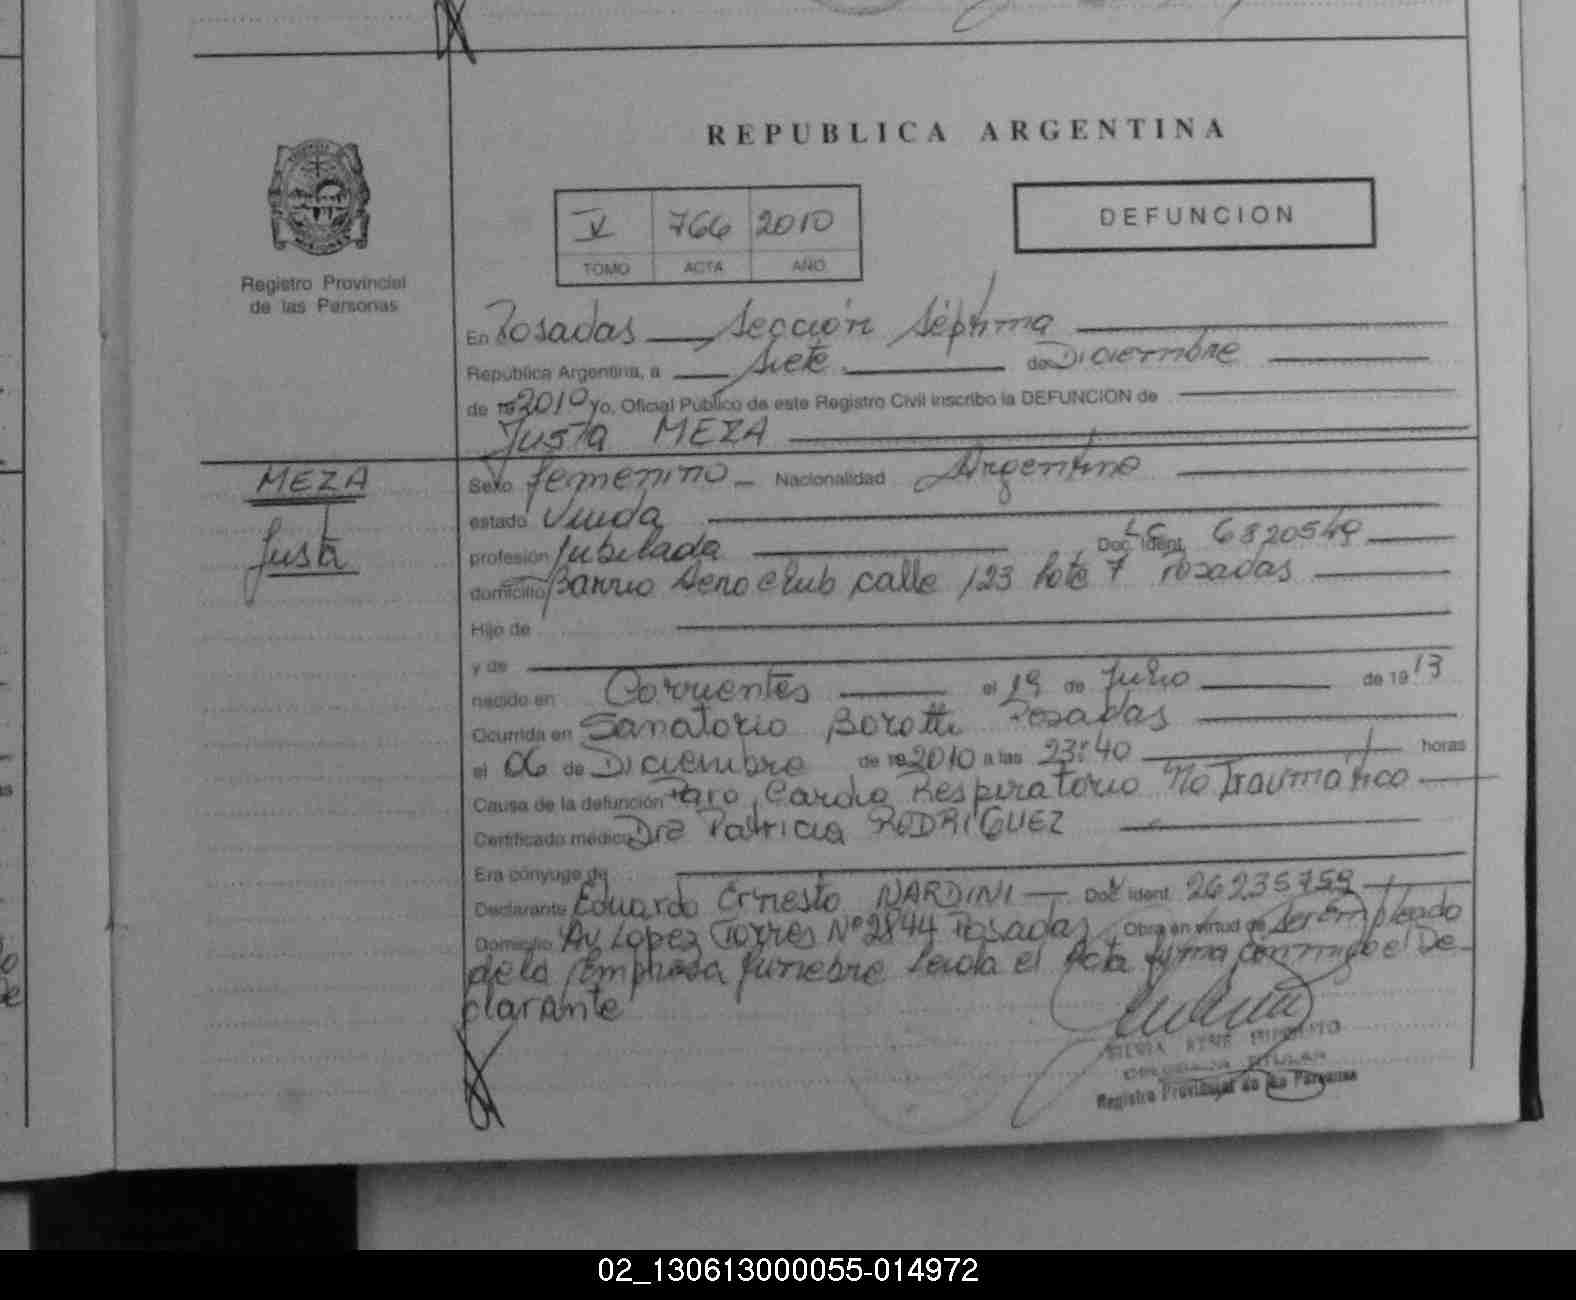 REPUBLICA ARGENTINA
Registro Provincial
de las Personas
V 766 2010
TOMO ACTA AÑO
DEFUNCION
En Posadas Sección Séptima
República Argentina, a Siete de Diciembre
de 19 2010 yo, Oficial Público de este Registro Civil inscribo la DEFUNCION de
Justa MEZA
MEZA
Justa
Sexo femenino Nacionalidad Argentina
estado Viuda
profesión Jubilada Doc. Ident. LC 6820549
domicilio Barrio Aeroclub calle 123 lote 7 Posadas
Hijo de
y de
nacido en Corrientes el 19 de Julio de 19 13
Ocurrida en Sanatorio Boratti Posadas
el 06 de Diciembre de 19 2010 a las 23:40 horas
Causa de la defunción Paro Cardio Respiratorio No Traumatico
Certificado médico Dra Patricia RODRIGUEZ
Era cónyuge de
Declarante Eduardo Ernesto NARDINI Doc. Ident. 26235759
Domicilio Av Lopez Torres Nº 2844 Posadas Obra en virtud de Ser Empleado
de la Empresa funebre Leida el Acta firma conmigo el De-
clarante
Registro Provincial de las Personas
02_130613000055-014972